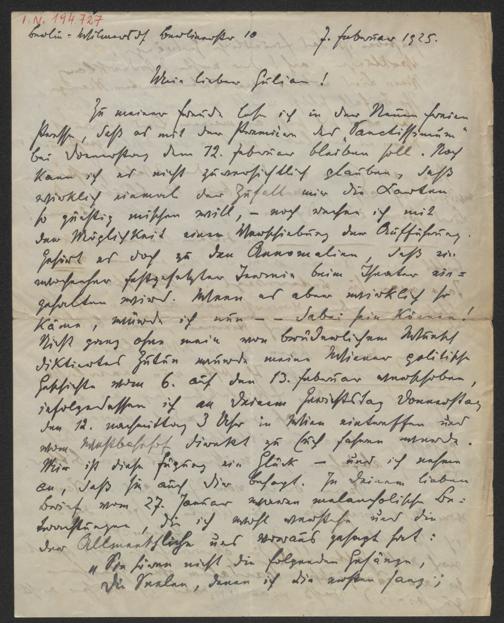 I.N. 194727
Berlin-Wilmersdf, Berlinerstr 10 7. Februar 1925.
Mein lieber Julian!
Zu meiner Freude lese ich in der Neuen Freien
Presse, daß es mit der Première des „Sanctissimum“
bei Donnerstag dem 12. Februar bleiben soll. Noch
kann ich es nicht zuversichtlich glauben, daß
wirklich einmal der Zufall mir die Karten
so günstig mischen will, – noch rechne ich mit
der Möglichkeit einer Verschiebung der Aufführung.
Gehört es doch zu den Anomalien, daß ein
festgesetzter Termin beim Theater ein=
gehalten wird. Wenn es aber wirklich so
käme, würde ich nun – – dabei sein können!
Nicht ganz ohne mein von brüderlichem Wunsch
diktiertes Zutun wurde meine Wiener politische
Geschichte vom 6. auf den 13. Februar verschoben,
infolgedessen ich an Deinem Gerichtstag Donnerstag
den 12. nachmittag 3 Uhr in Wien eintreffen und
vom Westbahnhof direkt zu Euch fahren würde.
Mir ist diese Fügung ein Glück – und ich nehme
an, daß sie auch Dir behagt. In Deinem lieben
Brief vom 27. Januar waren melancholische Be=
trachtungen, die ich wohl verstehe und die
der Allmenschliche uns voraus gesagt hat:
„Sie hören nicht die folgenden Gesänge,
Die Seelen, denen ich die ersten sang;